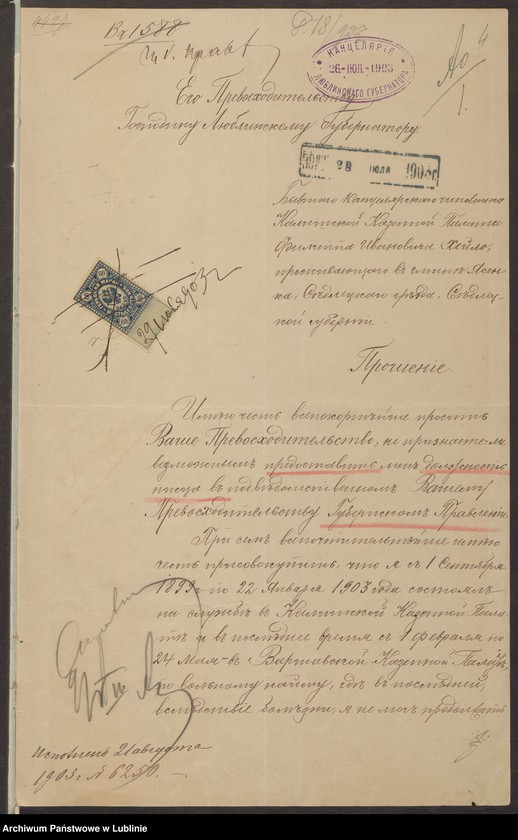 Вх 1588
КАНЦЕЛЯРІЯ
26-ІЮЛ-1903
ЛЮБЛИНСКАГО ГУБЕРНАТОРА
Его Превосходительству
Господину Люблинскому Губернатору
28 ІЮЛЯ 1903
Бывшаго Канцелярскаго чиновника
Калишской Казенной Палаты
Филиппа Ивановича
проживающаго в
Сѣдлецкаго уѣзда, Сѣдлец-
кой губерніи.
29 1903
Прошеніе
Имѣю честь всепокорнѣйше просить
Ваше Превосходительство, не признаете ли
возможнымъ предоставить мнѣ должность
писца въ подвѣдомственномъ Вашему
Превосходительству Губернскомъ Правленіи.
При семъ всепочтительнѣйше имѣю
честь присовокупить, что я съ 1 Сентября
1899 г по 22 Января 1903 года состоялъ
на службѣ в Калишской Казенной Пала-
тѣ и в послѣднее время съ 1 февраля по
24 Мая в Варшавской Казенной Палатѣ,
по вольному найму, гдѣ в послѣдней,
вслѣдствіе болѣзни, я не могъ продолжать
Исполнено 21 августа
1903 г № 6250.
Archiwum Państwowe w Lublinie